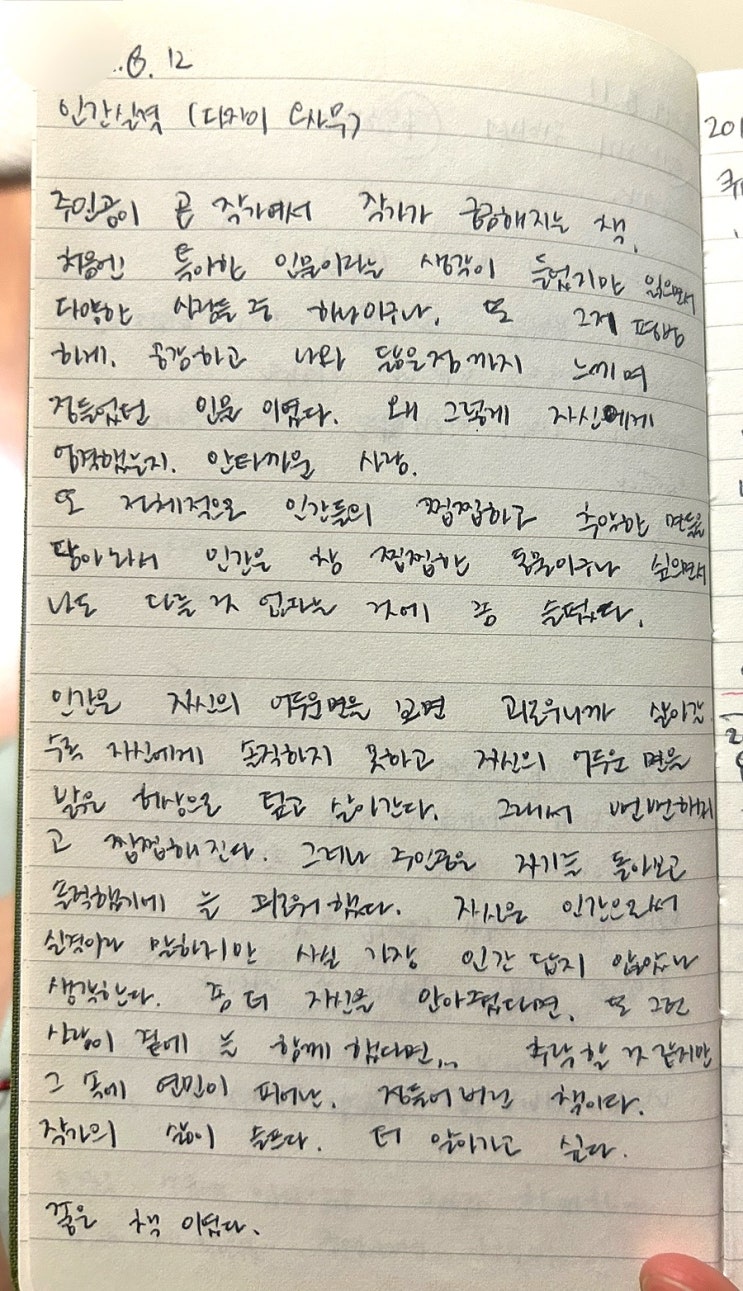 .8.12
인간실격 (다자이 오사무)
주인공이 곧 작가여서 작가가 궁금해지는 책.
처음엔 특이한 인물이라는 생각이 들었지만 읽으면서
다양한 사람들 중 하나이구나. 또 그게 평범
하게. 공감하고 나와 닮은점까지 느끼며
정들었던 인물이였다. 왜 그렇게 자신에게
엄격했는지. 안타까운 사람.
또 전체적으로 인간들의 찝찝하고 추악한 면들을
담아놔서 인간은 참 찝찝한 동물이구나 싶으면서
나도 다를 것 없다는 것에 좀 슬펐다.
인간은 자신의 어두운면을 보면 괴로우니까 살아갈
수록 자신에게 솔직하지 못하고 자신의 어두운 면을
밝은 허상으로 덮고 살아간다. 그래서 뻔뻔해지
고 찝찝해진다. 그러나 주인공은 자기를 돌아보고
솔직했기에 늘 괴로워했다. 자신은 인간으로서
실격이라 말하지만 사실 가장 인간 답지 않았나
생각한다. 좀 더 자신을 안아줬다면, 또 그런
사람이 곁에 늘 함께 했다면... 추락할 것 같지만
그 속에 연민이 피어난. 정들어버린 책이다.
작가의 삶이 슬프다. 더 알아가고 싶다.
좋은 책 이였다.
201